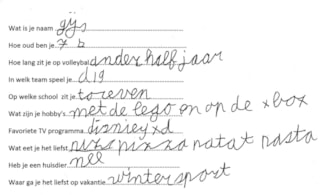 Wat is je naam gijs
Hoe oud ben je. 7 b
Hoe lang zit je op volleybal anderhalf jaar
In welk team speel je d19
Op welke school zit je toreven
Wat zijn je hobby's met de lego en op de xbox
Favoriete TV programma. disney xd
Wat eet je het liefst pizza patat pasta
Heb je een huisdier. nee
Waar ga je het liefst op vakantie. wintersport